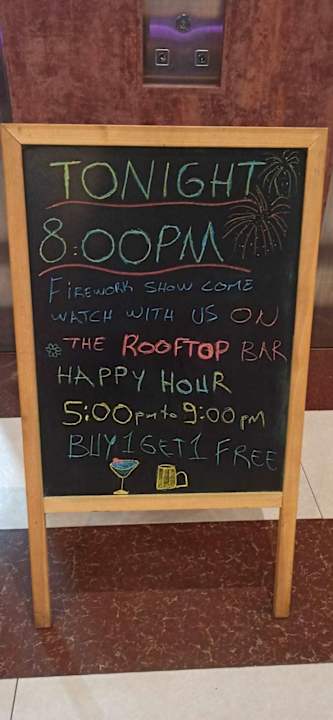 TONIGHT
8:00PM
FIREWORK SHOW COME
WATCH WITH US ON
THE ROOFTOP BAR
HAPPY HOUR
5:00pm to 9:00pm
BUY 1 GET 1 FREE